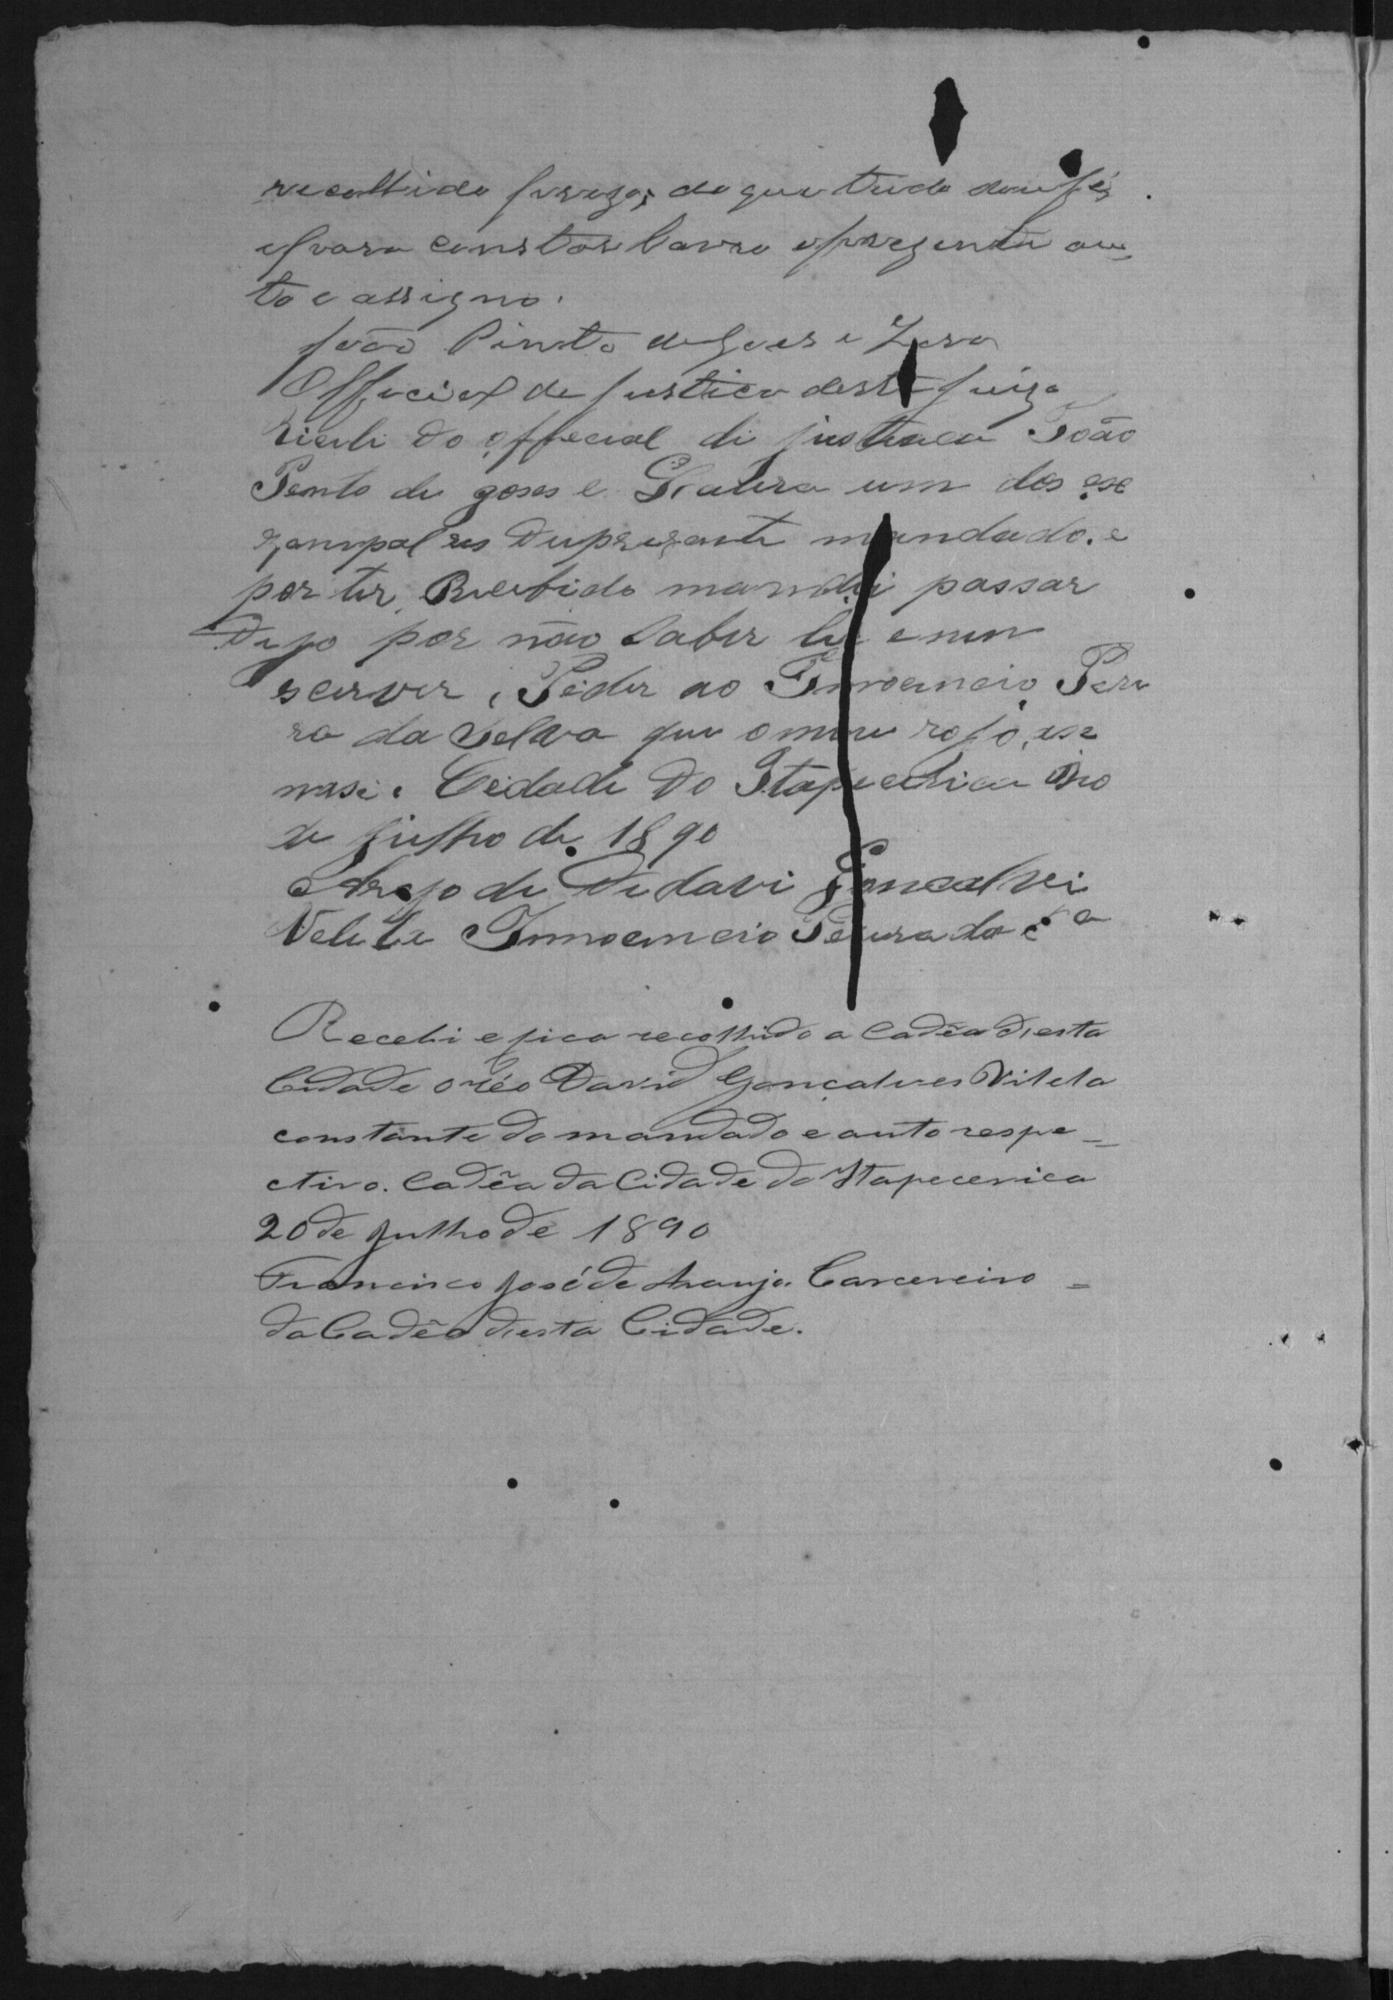 recolhido prezo; do que tudo dou fé;
e para constar lavro o prezente au-
to e assigno.
João Pinto de Goes e Lara
Official de justica deste juizo
Recibi do official di justica João
Pento de goes e Lara um dos exe
zemplares do prezente mandado. e
por ter Recebido mandei passar
por não saber ler e nem
screver, Pedir ao Innocencio Peri
ra da Selva que o meu rojo, ase
nase. Cidade do Itapecerica
de julho de 1890
Arojo de Davi Goncalvi
Velela Innocencio Pereira da Sa
Recebi e fica recolhido a Cadêa desta
Cidade o réo David Gonçalves Vilela
constante do mandado e auto respe-
ctivo. Cadêa da Cidade do Itapecerica
20 de Julho de 1890
Francisco José de Araujo Carcereiro =
da Cadêa desta Cidade.